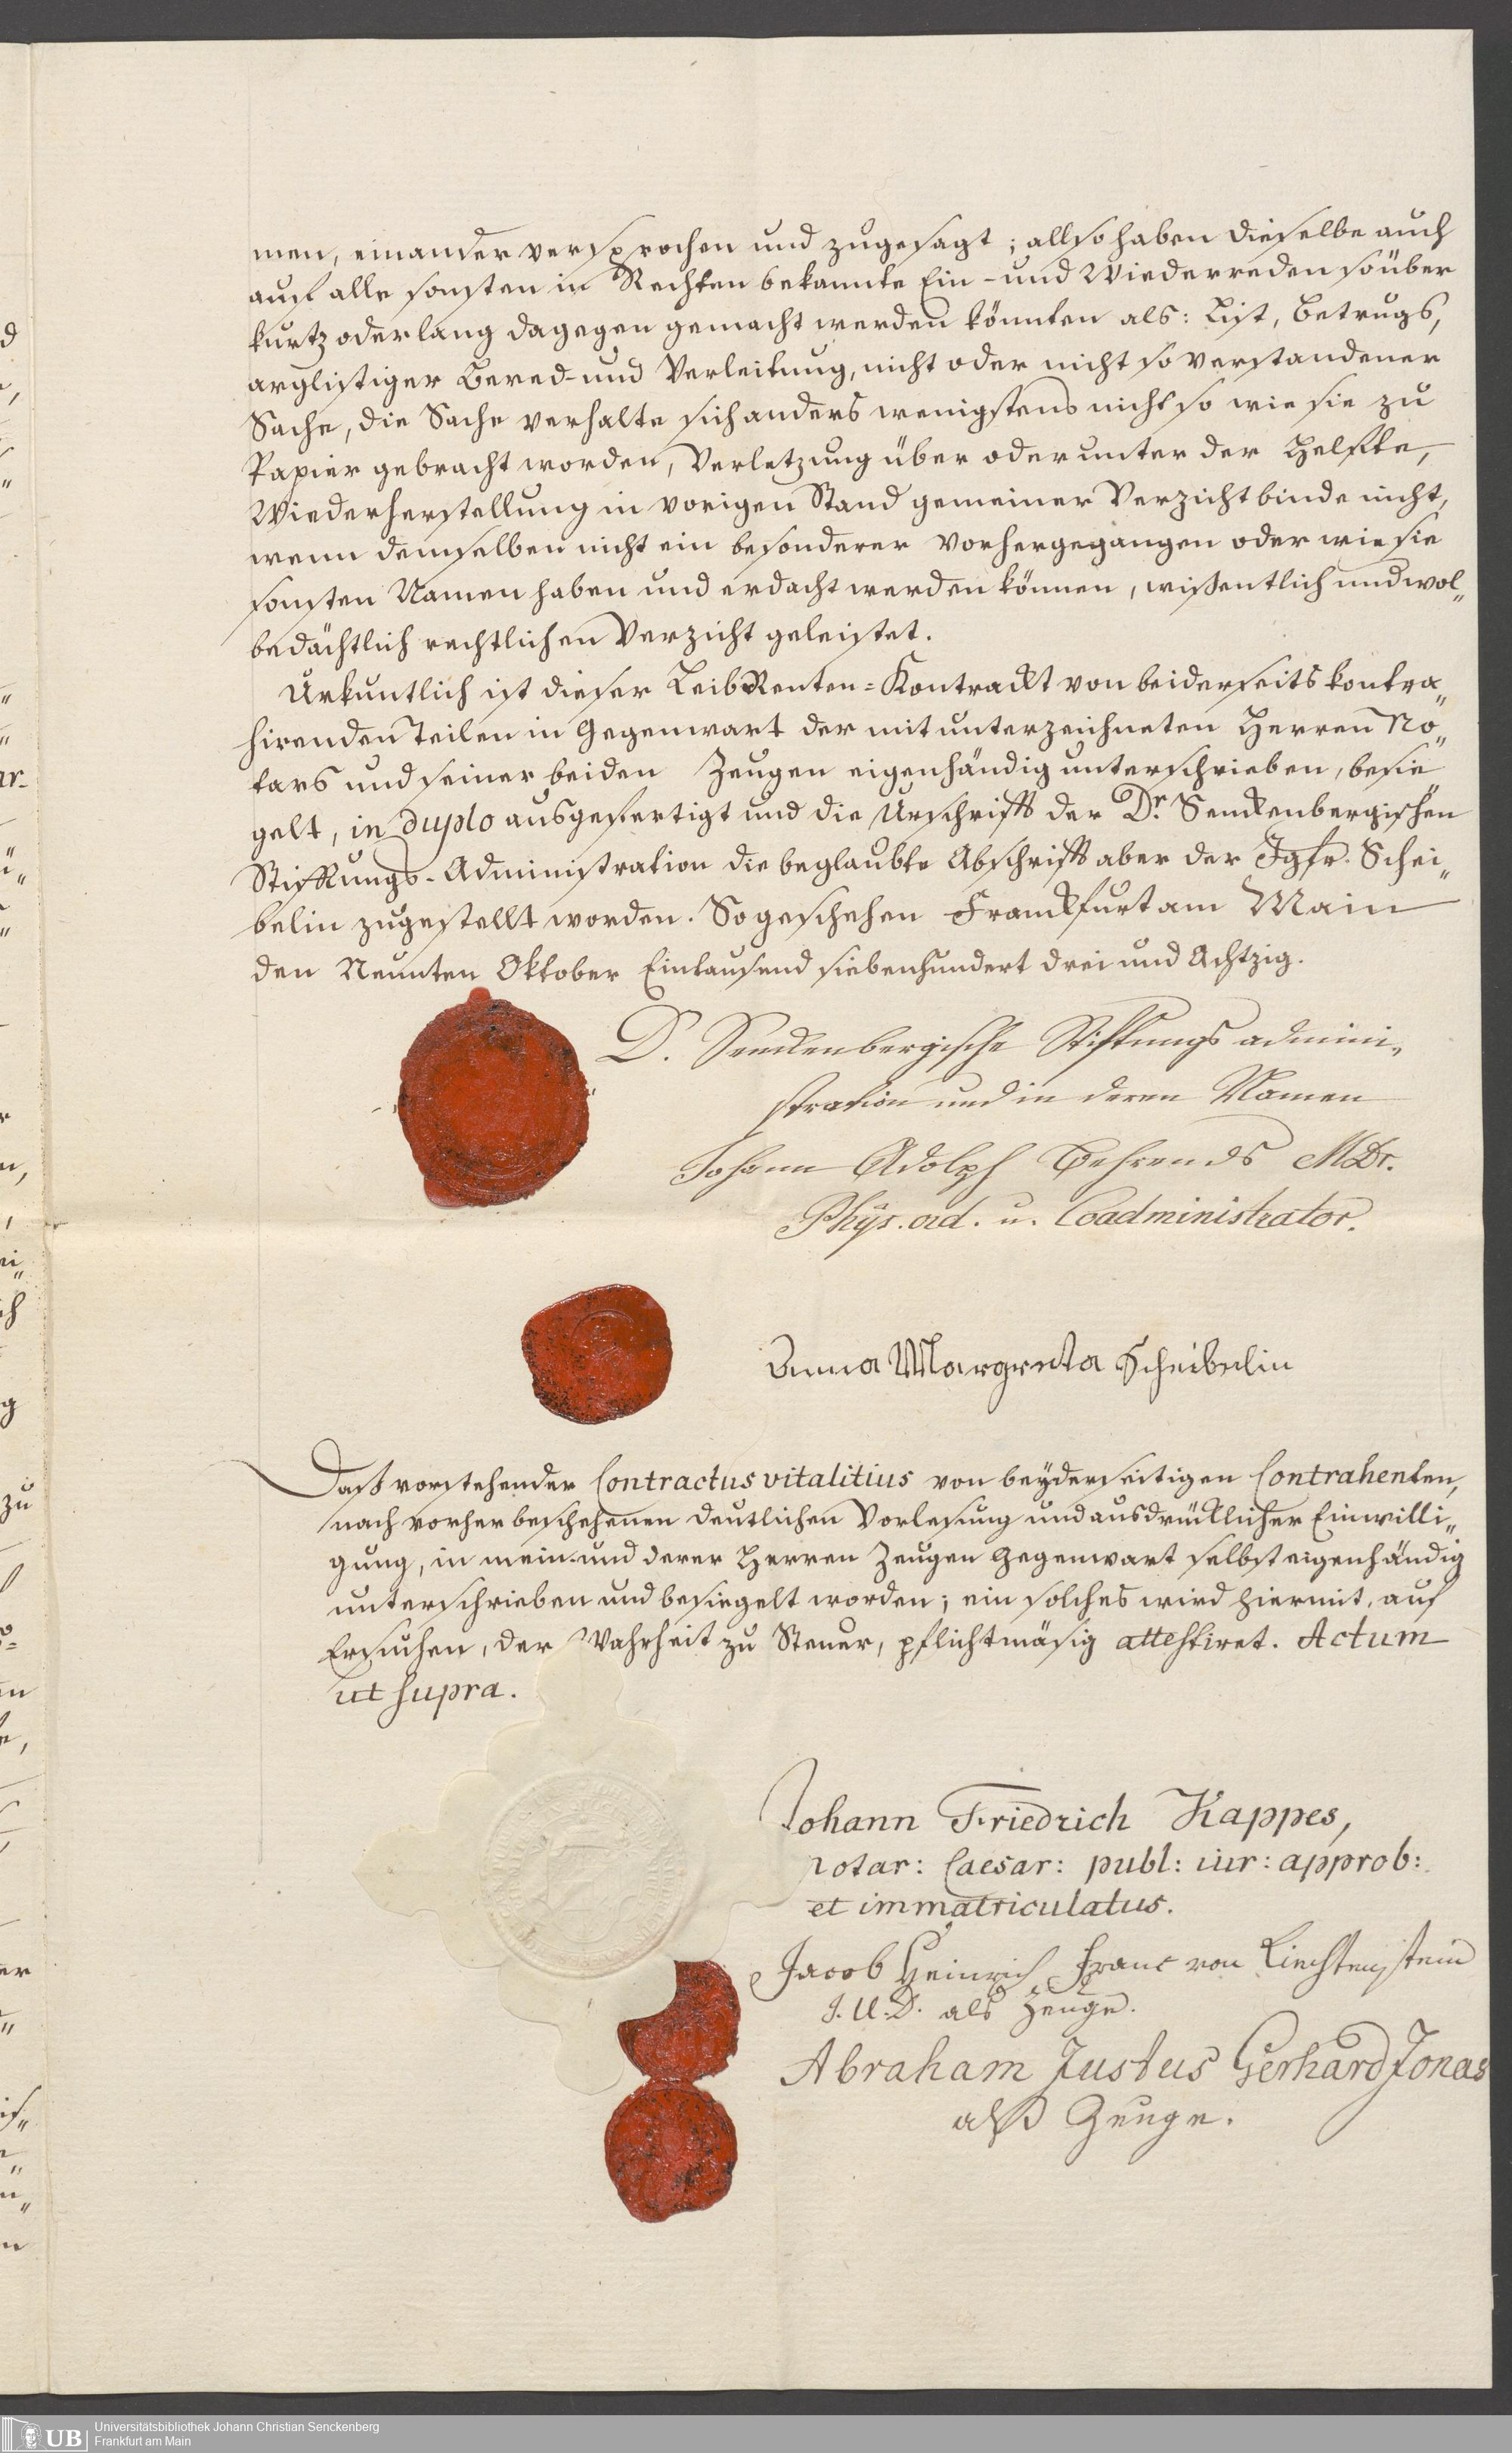 men, einander versprochen und zugesagt; allso haben dieselbe auch
auf alle sonsten in Rechten bekannte Ein- und Wiederreden so über
kurtz oder lang dagegen gemacht werden könnten als: List, Betrugs,
arglistiger Bered- und Verleitung, nicht oder nicht so verstandener
Sache, die Sache verhalte sich anders wenigstens nicht so wie sie zu
Papier gebracht worden, Verletzung über oder unter der Helfte,
Wiederherstellung in vorigen Stand gemeiner Verzicht binde nicht,
wenn demselben nicht ein besonderer vorhergegangen oder wie sie
sonsten Namen haben und erdacht werden können, wißentlich und wol„
bedächtlich rechtlichen Verzicht geleistet.
Urkuntlich ist dieser Leib Renten-Kontrackt von beiderseits kontra„
hirenden Teilen in Gegenwart der mit unterzeichneten Herren No„
tars und seiner beiden Zeugen eigenhändig unterschrieben, besie
gelt, in duplo ausgefertigt und die Urschrifft der Dr. Senckenbergischen
Stifftungs-Administration die beglaubte Abschrifft aber der Jgfr. Schei„
belin zugestellt worden. So geschehen Franckfurt am Main
den Neunten Oktober Eintausend siebenhundert drei und Achtzig.
D. Senckenbergische Stiftungs admini„
stration und in deren Namen
Johann Adolph Behrends MDr.
Phys. ord. u. Coadministrator.
Anna Margreta Scheibelin
Daß vorstehender Contractus vitalitius von beyderseitigen Contrahenten,
nach vorher beschehenen deutlichen Vorlesung und ausdrücklicher Einwilli„
gung, in mein und derer Herren Zeugen Gegenwart selbst eigenhändig
unterschrieben und besiegelt worden; ein solches wird hiermit, auf
Ersuchen, der Wahrheit zu Steuer, pflichtmäsig attestiret. Actum
ut supra.
Johann Friedrich Kappes,
Notar: Caesar: publ: iur: approb:
et immatriculatus.
Jacob Heinrich Franc von Liechtenstein
J.U.D. als Zeuge.
Abraham Justus Gerhard Jonas
alß Zeuge.
UB Universitätsbibliothek Johann Christian Senckenberg
Frankfurt am Main